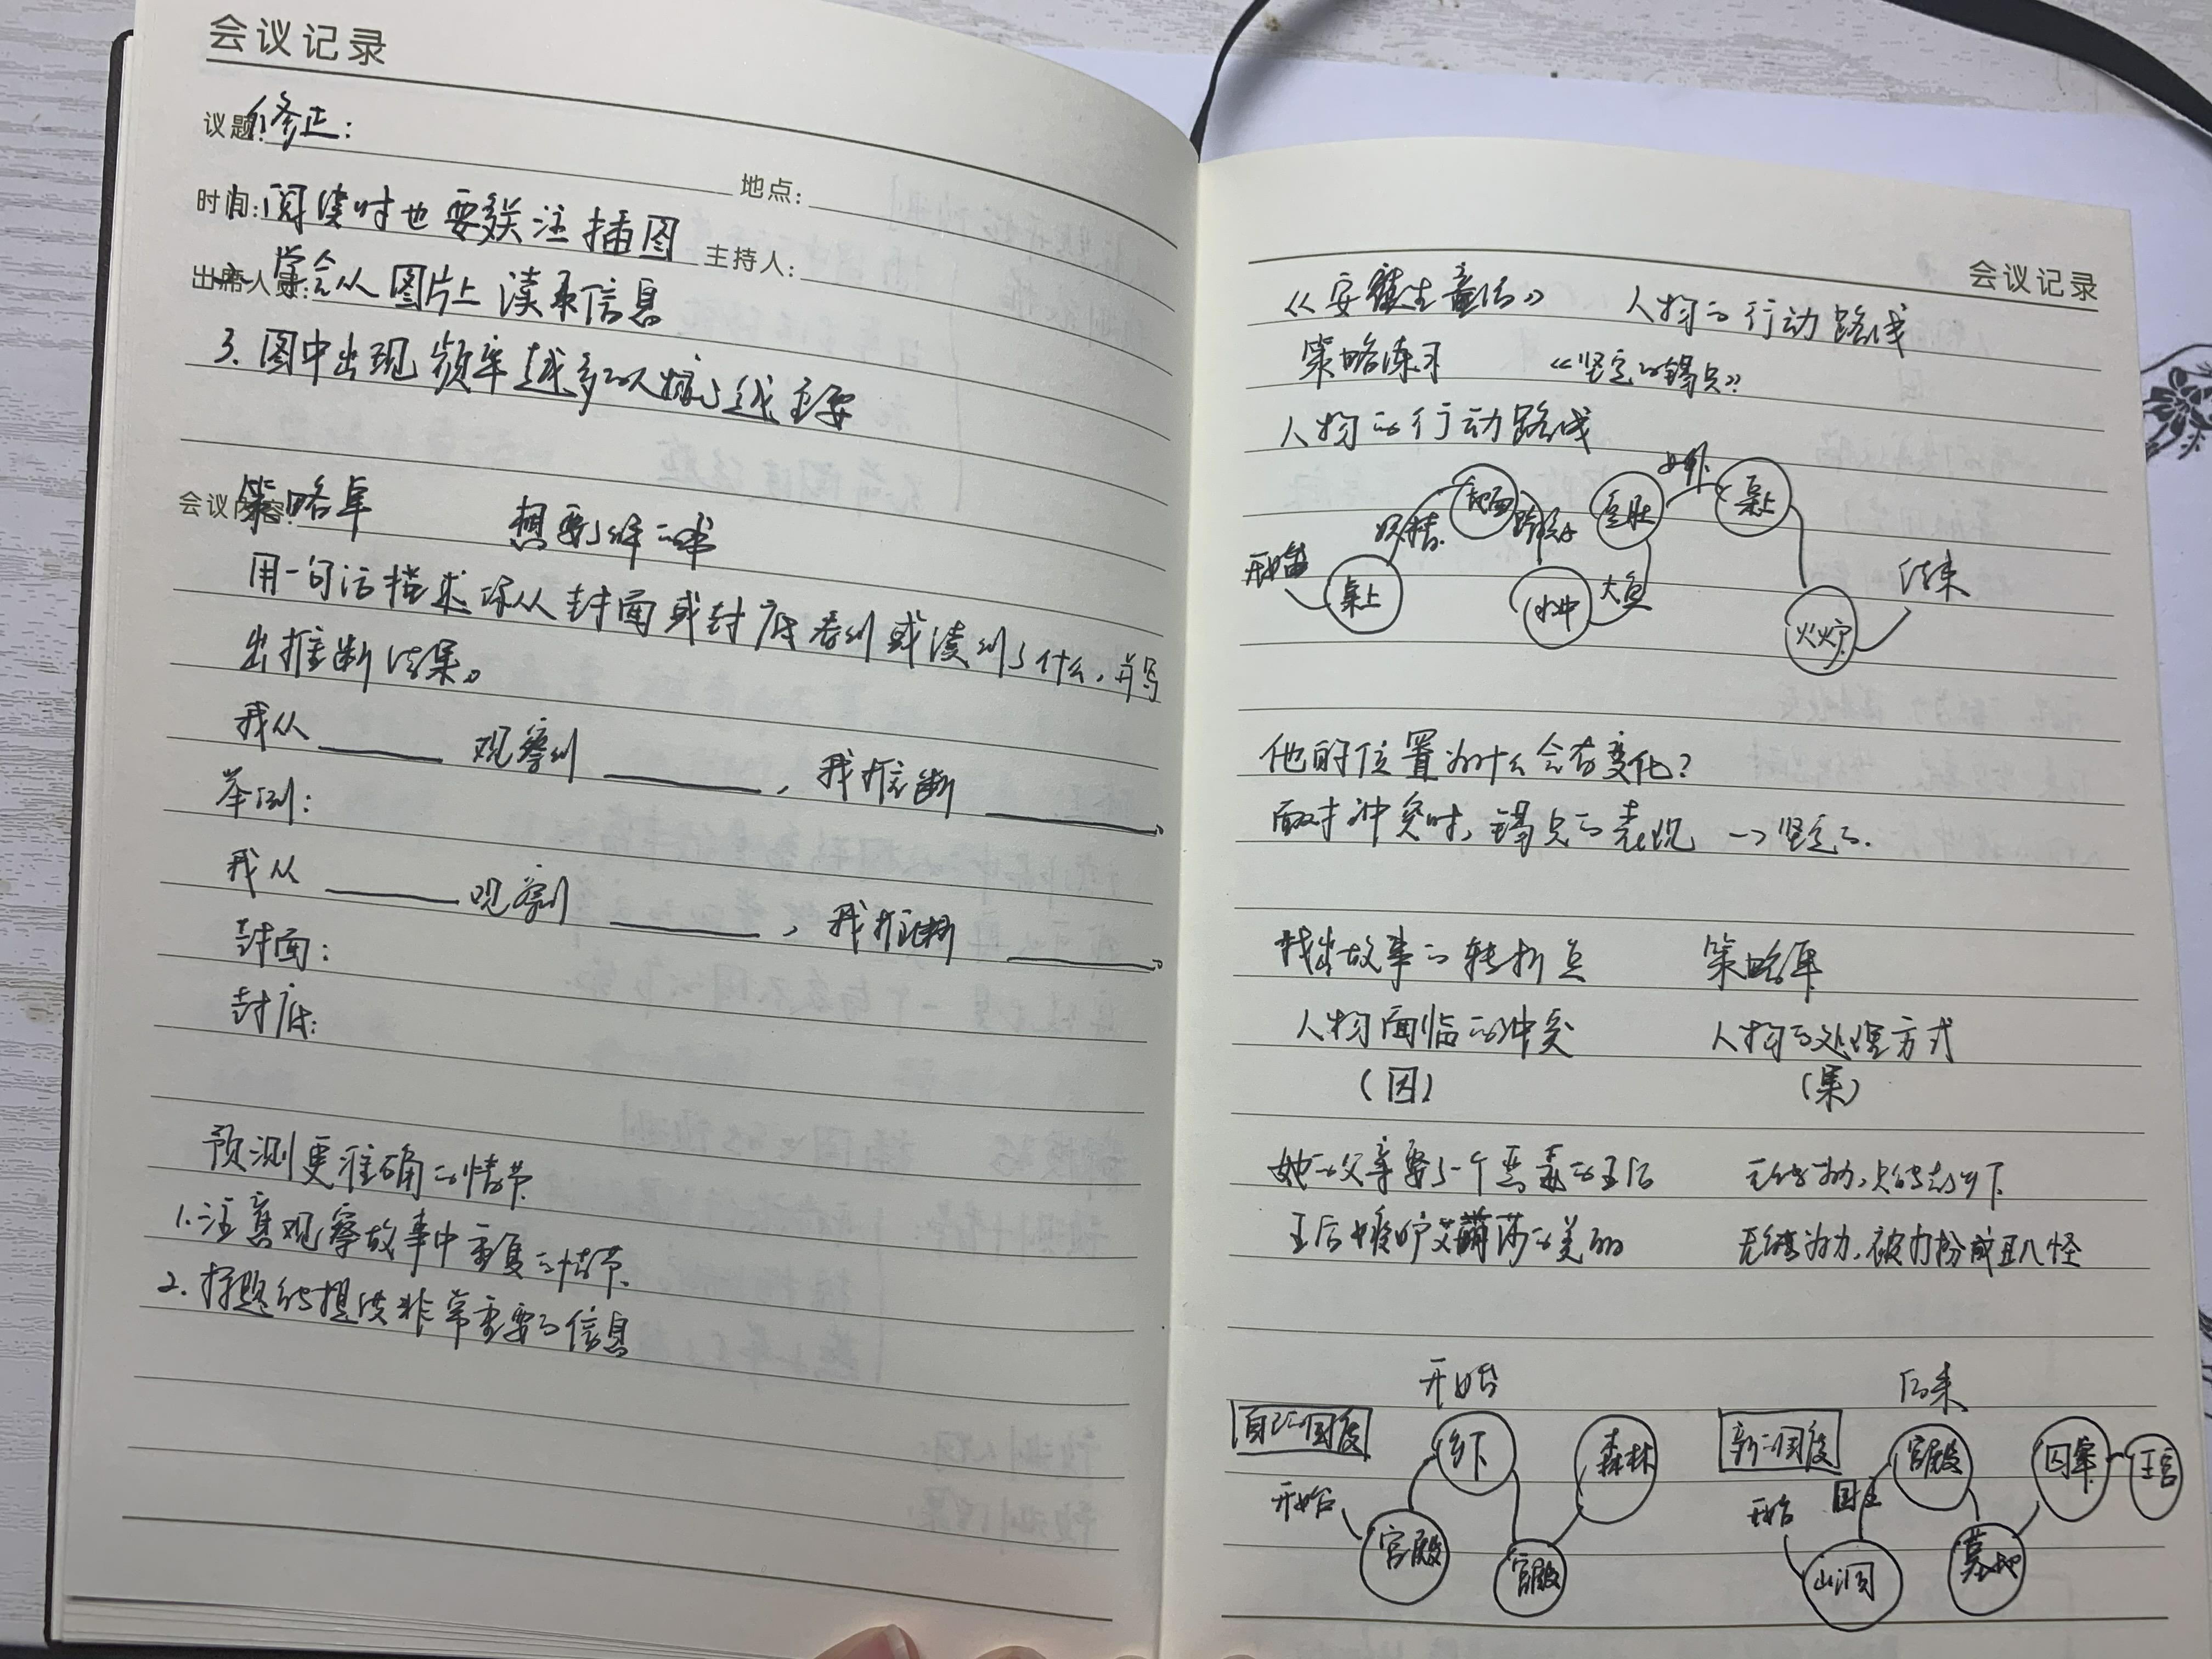 会议记录
议题: 修正:
地点:
时间: 1. 阅读时也要关注插图
主持人:
出席人员: 2. 学会从图片上读取信息
3. 图中出现频率越多的人物越主要
会议内容: 策略单 想要了解的书
用一句话描述你从封面或封底看到或读到了什么,并写
出推断结果。
我从 ______ 观察到 ______ , 我推断 ______。
举例:
我从 ______ 观察到 ______ , 我推断 ______。
封面:
封底:
预测更准确的情节
1.注意观察故事中重复的情节.
2.标题能提供非常重要的信息
会议记录
《安徒生童话》 人物的行动路线
策略练习 《坚定的锡兵》
人物的行动路线
开始 桌上 妖精 地面 水中 大鱼 鱼肚 女仆 桌上 火炉 结束
他的位置为什么会有变化?
面对冲突时,锡兵的表现 → 坚定的.
找出故事的转折点 策略单
人物面临的冲突 人物的处理方式
(因) (果)
她的父亲娶了一个恶毒的王后 无能为力,只能去乡下
王后嫉妒艾丽莎的美丽 无能为力,被打扮成丑八怪
开始 后来
自己的国度 乡下 森林 新的国度 宫殿 囚牢 王宫
开始 宫殿 宫殿 开始 国王 山洞 墓地